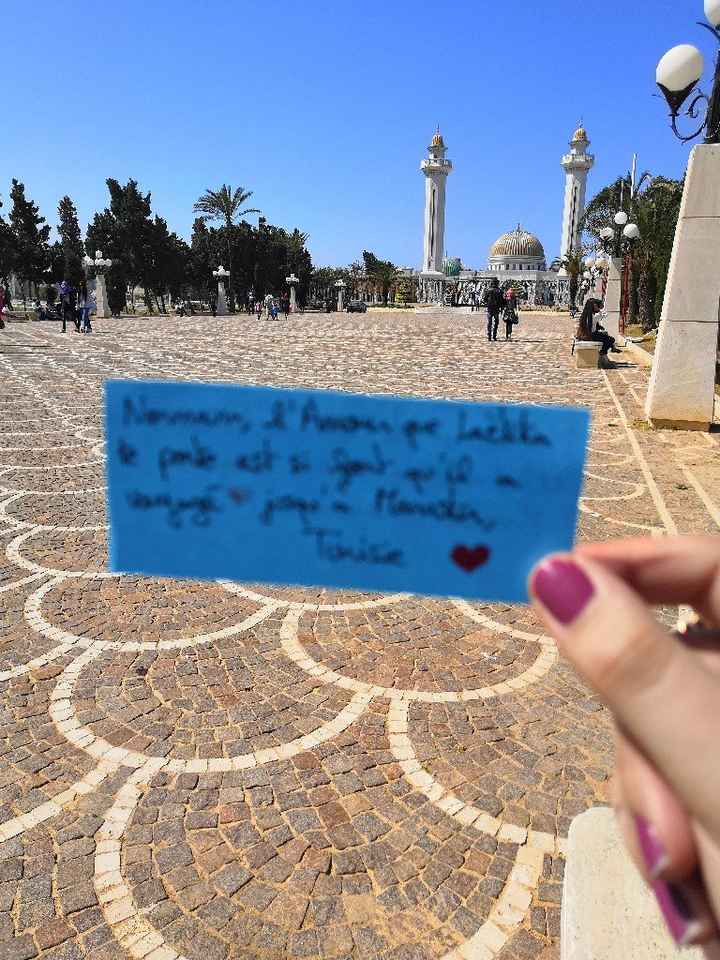 Normann, l'Amour que Laetitia
te porte est si fort qu'il a
voyagé jusqu'à Monastir,
Tunisie